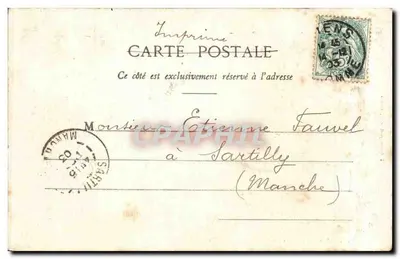 Imprimé
CARTE POSTALE
Ce côté est exclusivement réservé à l'adresse
Monsieur Etienne Fauvel
à Sartilly
(Manche)